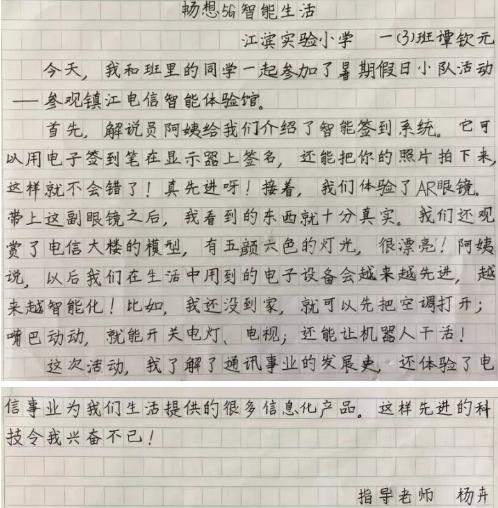 畅想5G智能生活
江滨实验小学 一(3)班谭钦元
今天，我和班里的同学一起参加了暑期假日小队活动
——参观镇江电信智能体验馆。
首先，解说员阿姨给我们介绍了智能签到系统。它可
以用电子签到笔在显示器上签名，还能把你的照片拍下来，
这样就不会错了！真先进呀！接着，我们体验了AR眼镜。
带上这副眼镜之后，我看到的东西就十分真实。我们还观
赏了电信大楼的模型，有五颜六色的灯光，很漂亮！阿姨
说，以后我们在生活中用到的电子设备会越来越先进，越
来越智能化！比如，我还没到家，就可以先把空调打开；
嘴巴动动，就能开关电灯、电视；还能让机器人干活！
这次活动，我了解了通讯事业的发展史，还体验了电
信事业为我们生活提供的很多信息化产品。这样先进的科
技令我兴奋不已！
指导老师 杨卉